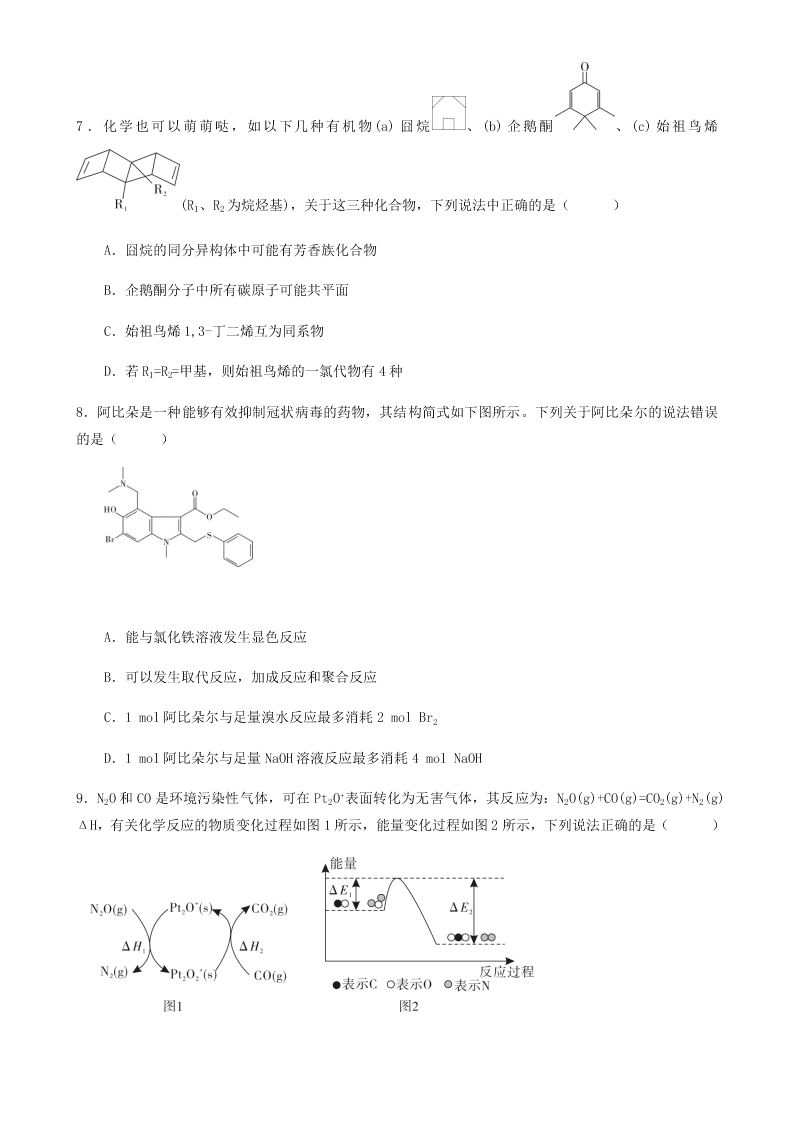 O
7．化学也可以萌萌哒，如以下几种有机物(a)囧烷、(b)企鹅酮、(c)始祖鸟烯
R₁ R₂ (R₁、R₂为烷烃基)，关于这三种化合物，下列说法中正确的是（ ）
A．囧烷的同分异构体中可能有芳香族化合物
B．企鹅酮分子中所有碳原子可能共平面
C．始祖鸟烯 1,3-丁二烯互为同系物
D．若 R₁=R₂=甲基，则始祖鸟烯的一氯代物有 4 种
8．阿比朵是一种能够有效抑制冠状病毒的药物，其结构简式如下图所示。下列关于阿比朵尔的说法错误
的是（ ）
N
O
HO
O
Br
N
S
A．能与氯化铁溶液发生显色反应
B．可以发生取代反应，加成反应和聚合反应
C．1 mol 阿比朵尔与足量溴水反应最多消耗 2 mol Br₂
D．1 mol 阿比朵尔与足量 NaOH 溶液反应最多消耗 4 mol NaOH
9．N₂O 和 CO 是环境污染性气体，可在 Pt₂O⁺表面转化为无害气体，其反应为：N₂O(g)+CO(g)=CO₂(g)+N₂(g)
ΔH，有关化学反应的物质变化过程如图 1 所示，能量变化过程如图 2 所示，下列说法正确的是（ ）
N₂O(g) Pt₂O⁺(s) CO₂(g)
ΔH₁ ΔH₂
N₂(g) Pt₂O₂⁺(s) CO(g)
图1
能量
ΔE₁
ΔE₂
反应过程
●表示C ○表示O 表示N
图2